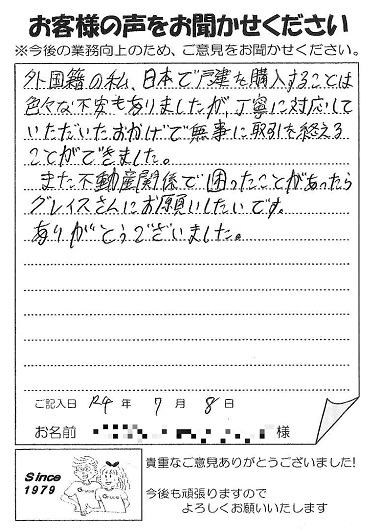 お客様の声をお聞かせください
※今後の業務向上のため、ご意見をお聞かせください。
外国籍の私、日本で戸建を購入することは
色々な不安もありましたが、丁寧に対応して
いただいたおかげで無事に取引を終える
ことができました。
また不動産関係で困ったことがあったら
グレイスさんにお願いしたいです。
ありがとうございました。
ご記入日 R4 年 7 月 8 日
お名前 様
Since
1979
貴重なご意見ありがとうございました!
今後も頑張りますので
よろしくお願いいたします